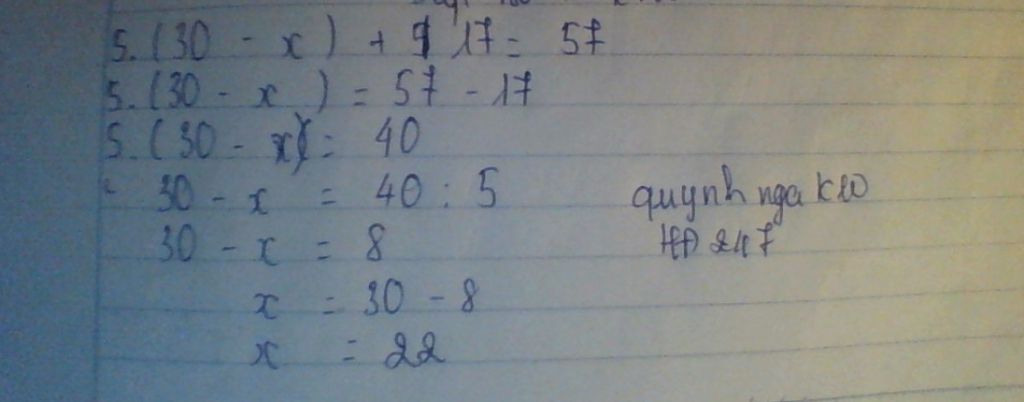 5.(30 - x) + 17 = 57
5.(30 - x) = 57 - 17
5.(30 - x) = 40
30 - x = 40 : 5
30 - x = 8
x = 30 - 8
x = 22
quynh nga
247